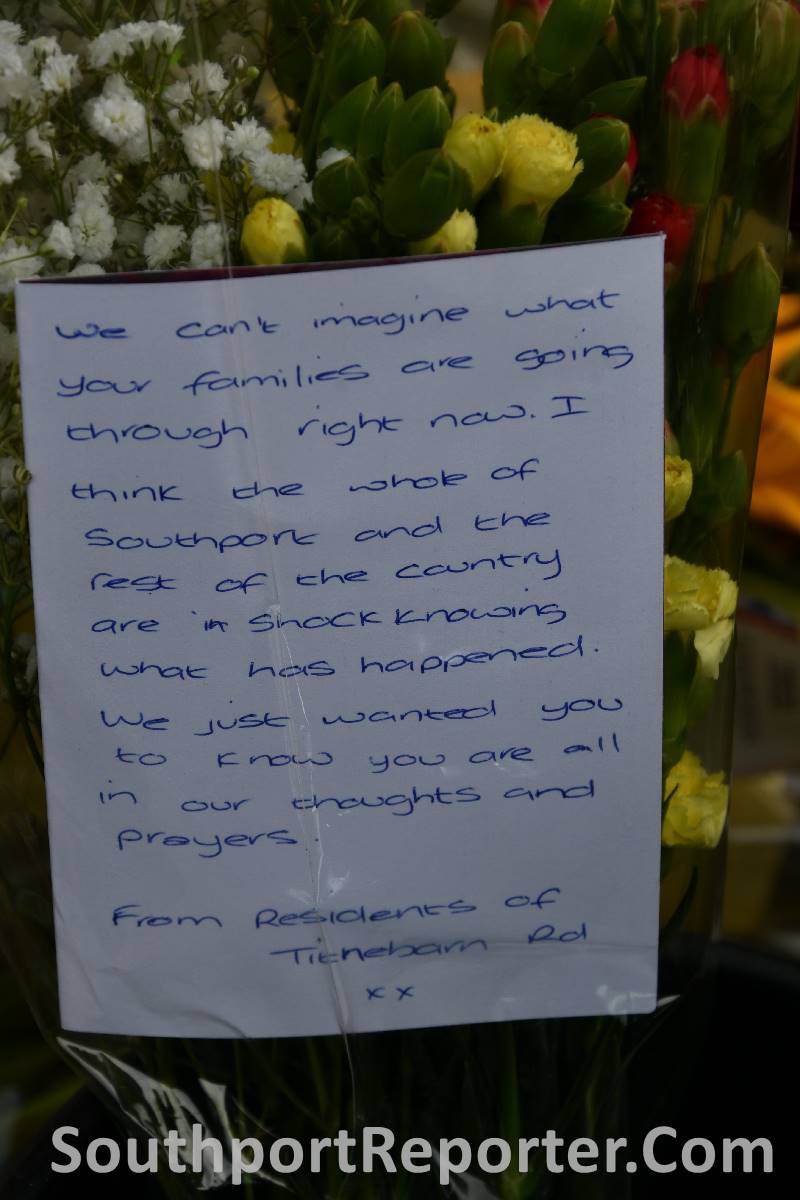 We can't imagine what
your families are going
through right now. I
think the whole of
Southport and the
rest of the country
are in shock knowing
what has happened.
We just wanted you
to know you are all
in our thoughts and
Prayers.
From Residents of
Tithebarn Rd
x x
SouthportReporter.Com